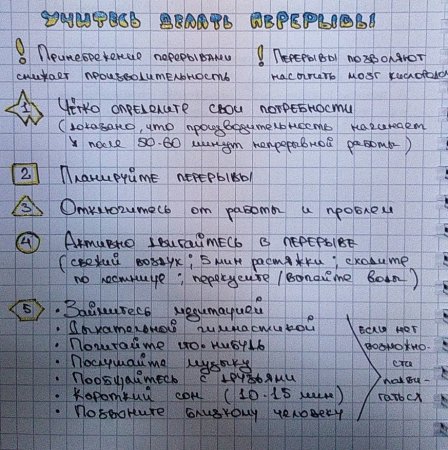 УЧИТЕСЬ ДЕЛАТЬ ПЕРЕРЫВЫ
! Пренебрежение перерывами снижает производительность
! Перерывы позволяют насытить мозг кислородо
1 Чётко определите свои потребности
(доказано, что производительность начинает
↓ после 50-60 минут непрерывной работы)
2 Планируйте перерывы
3 Отключитесь от работы и проблем
4 Активно двигайтесь в перерыве
(свежий воздух; 5 мин растяжки; сходите
по лестнице; перекусите / попейте воды)
5 • Займитесь медитацией
• Дыхательной гимнастикой
• Почитайте что-нибудь
• Послушайте музыку
• Пообщайтесь с друзьями
• Короткий сон (10-15 мин)
• Позвоните близкому человеку
если нет
возможно-
сти
подви-
гаться